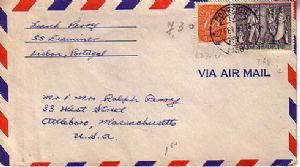 Frank Perry
SS Examiner
Lisbon, Portugal
VIA AIR MAIL
Mr & Mrs Ralph Perry
33 West Street
Attleboro, Massachusetts
U.S.A.